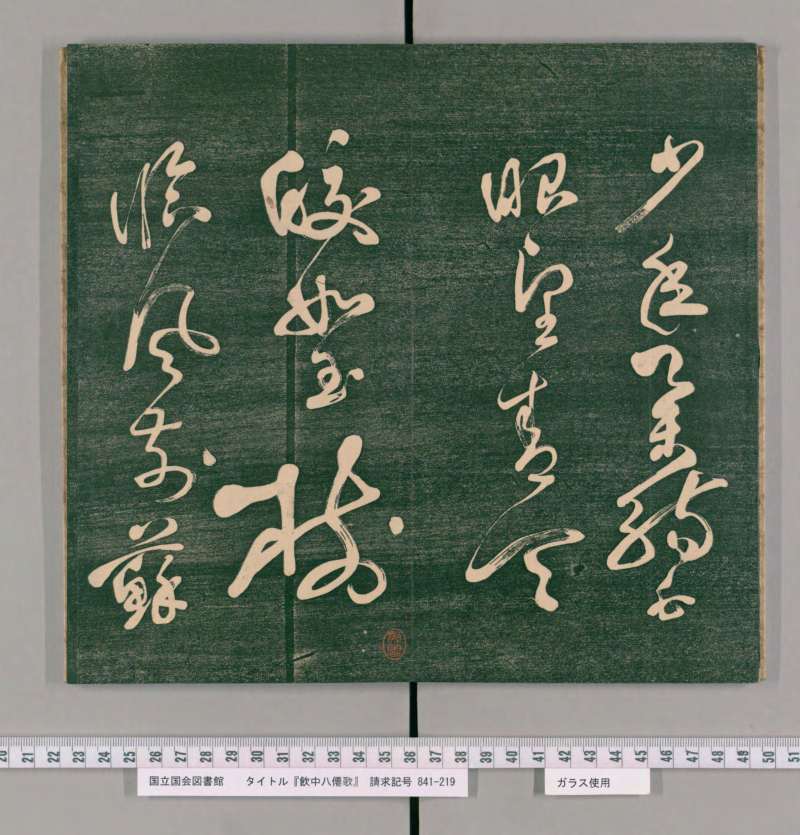 少年舉觴白
眼望青天
皎如玉樹
臨風前蘇
20 21 22 23 24 25 26 27 28 29 30 31 32 33 34 35 36 37 38 39 40 41 42 43 44 45 46 47 48 49 50 51
国立国会図書館 タイトル『飲中八僊歌』 請求記号 841-219
ガラス使用